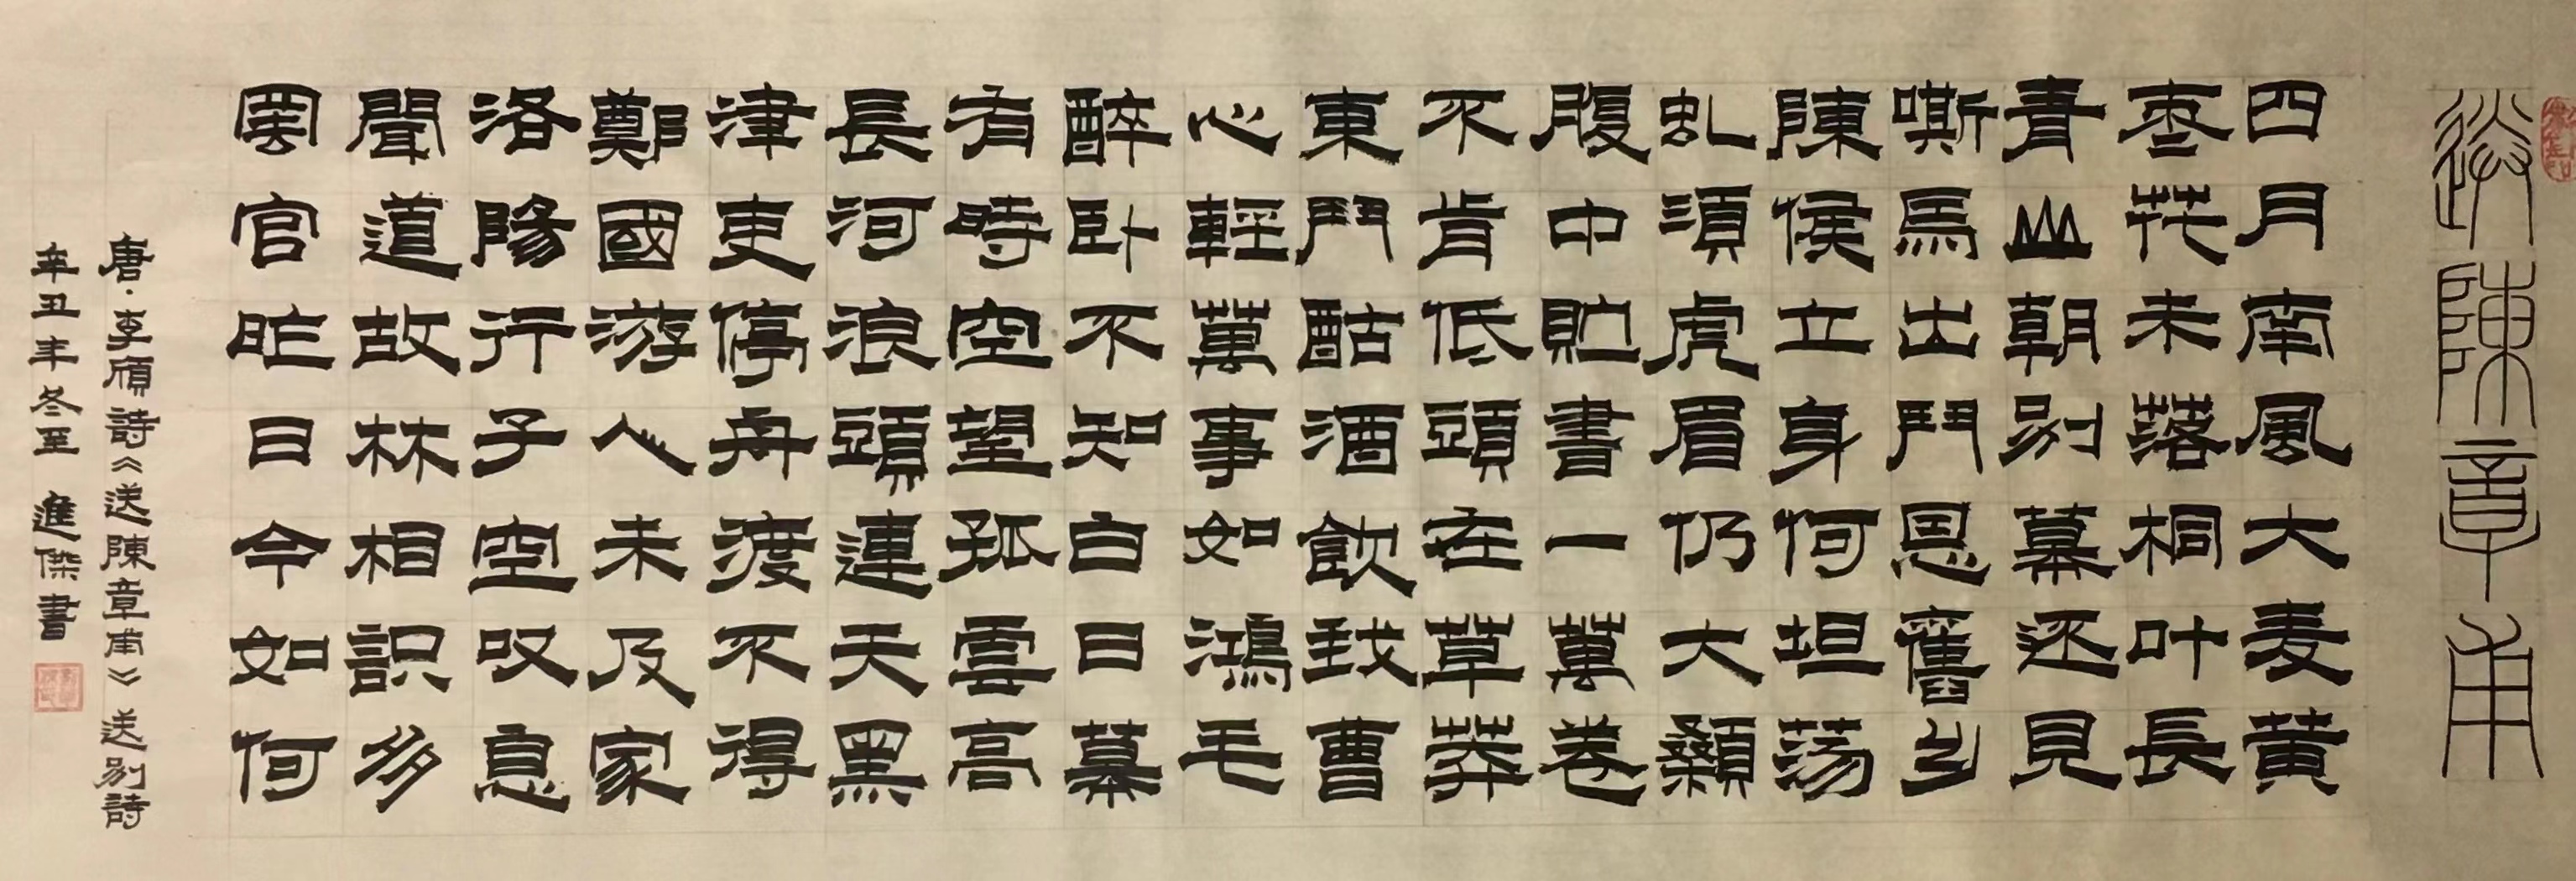 送陳章甫
四月南風大麦黄
枣花未落桐叶長
青山朝别暮还見
嘶馬出門思舊乡
陳侯立身何坦荡
虬須虎眉仍大顙
腹中貯書一萬卷
不肯低頭在草莽
東門酤酒飲我曹
心輕萬事如鴻毛
醉卧不知白日暮
有時空望孤雲高
長河浪頭連天黑
津吏停舟渡不得
鄭國游人未及家
洛陽行子空叹息
聞道故林相識多
罢官昨日今如何
唐·李頎詩《送陳章甫》送别詩
辛丑年冬至 進傑書